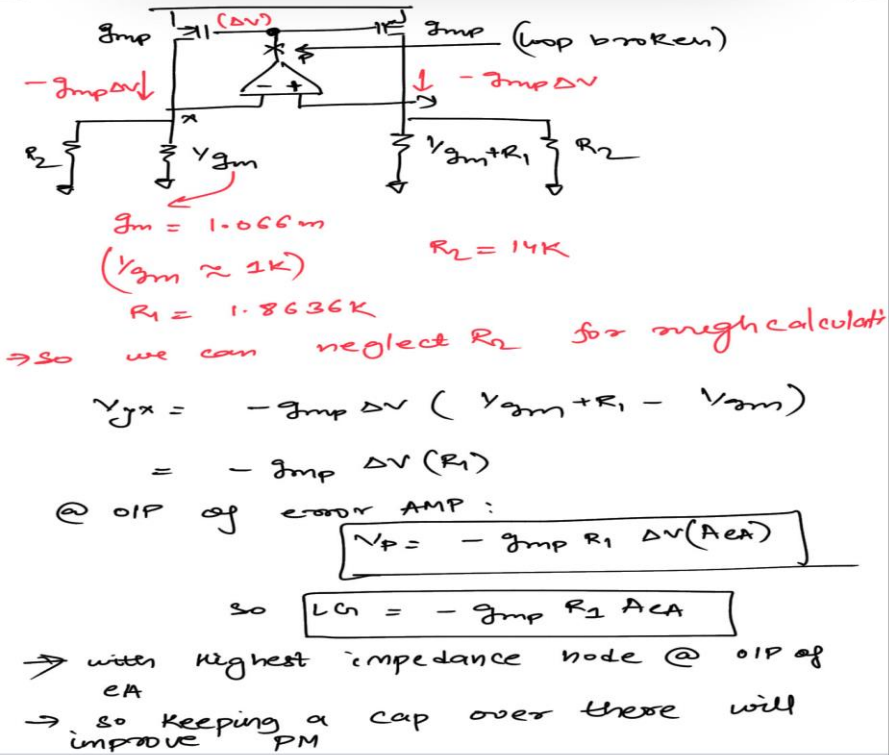 gmp (ΔV) gmp (loop broken)
P
- gmpΔV↓ - + ↓ - gmpΔV
x y
R2 1/gm 1/gm+R1 R2
gm = 1.066m
(1/gm ≈ 1K) R2 = 14K
R1 = 1.8636K
→ so we can neglect R2 for rough calculati
Vyx = - gmp ΔV ( 1/gm + R1 - 1/gm)
= - gmp ΔV (R1)
@ O/P of error AMP :
Vp = - gmp R1 ΔV(AeA)
so LG = - gmp R1 AeA
→ with Highest impedance node @ O/P of
eA
→ so keeping a cap over there will
improve PM